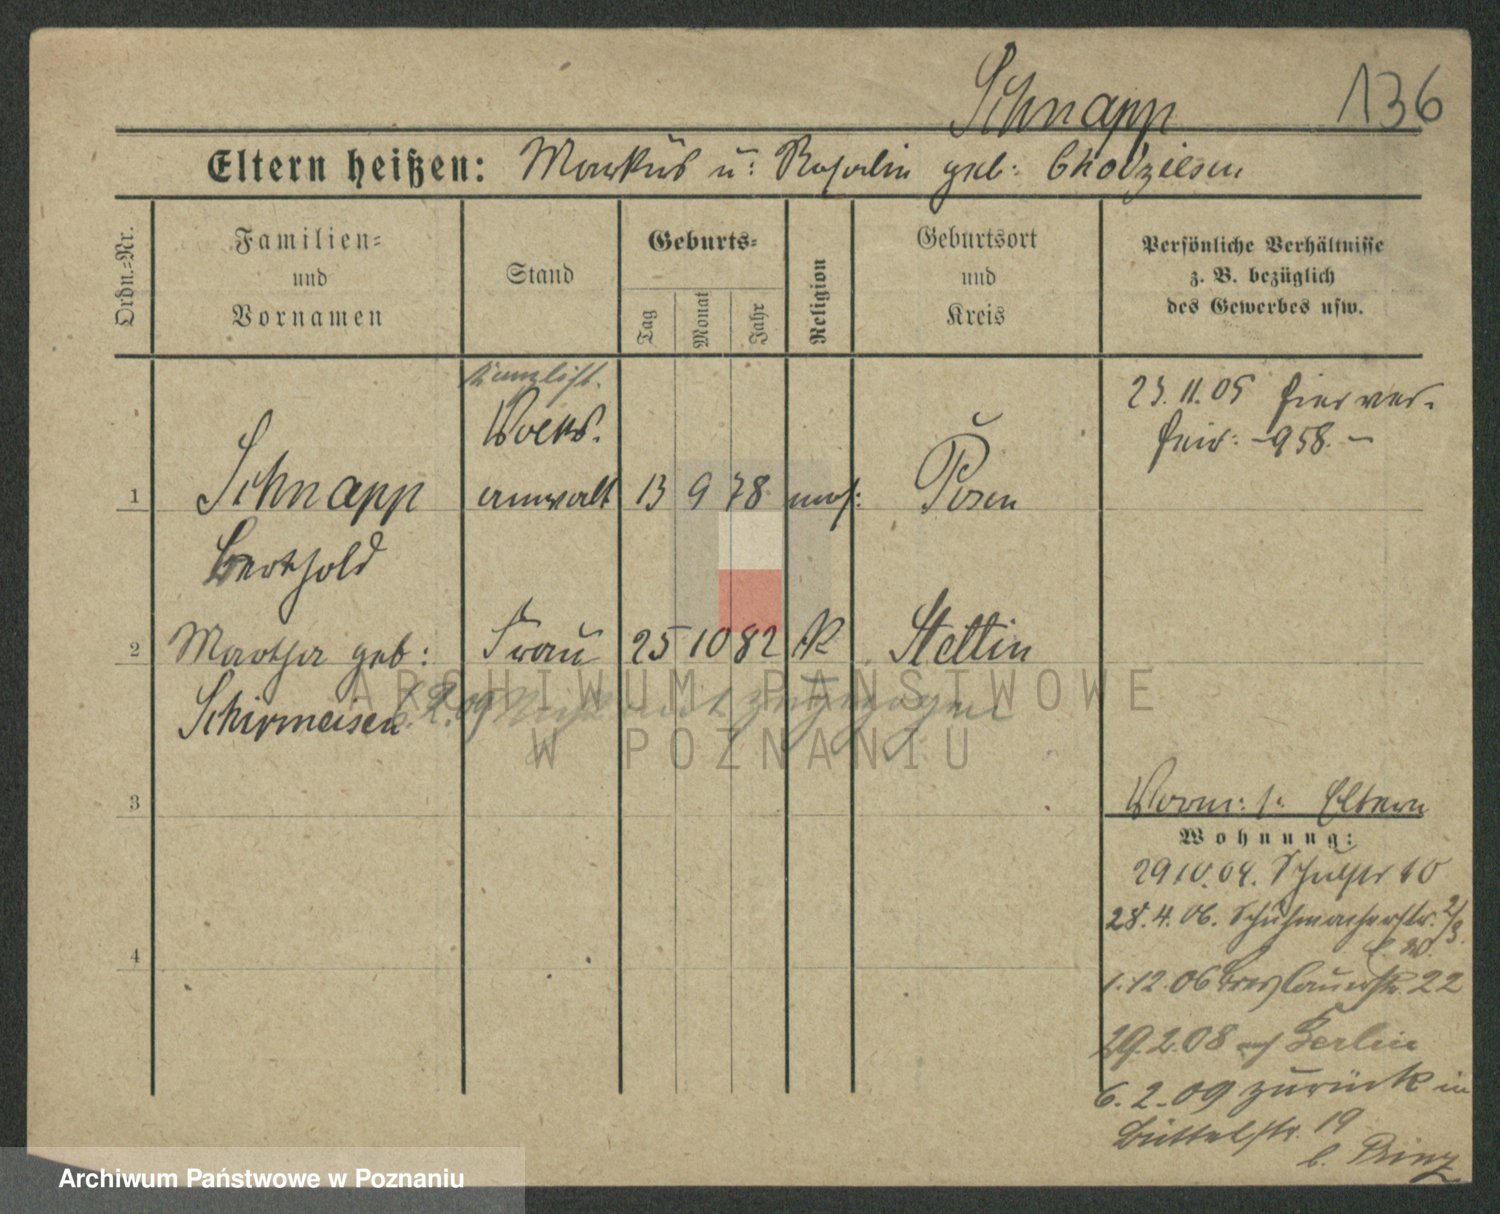 Schnapp 136
Eltern heißen: Markus u: Rosalin geb: Chodziesen
Ordn.-Nr.
Familien-
und
Vornamen
Stand
Geburts-
Tag
Monat
Jahr
Religion
Geburtsort
und
Kreis
Persönliche Verhältnisse
z. B. bezüglich
des Gewerbes usw.
Kanzlist.
Volks.
23.11.05 hier ver-
heir: -958.-
1 Schnapp anwalt 13 9 78 mos: Posen
Berthold
2 Martha geb: Frau 25 10 82 K Stettin
Schirmeisen 6.2.09
ARCHIWUM PAŃSTWOWE
W POZNANIU
3
Vorm: s. Eltern
Wohnung:
29.10.04. Schulstr 10
28.4.06. Schuhmacherstr. 2/3.
4
1.12.06 Breslauerstr. 22
29.2.08 nach Berlin
6.2.09 zurück in
Büttelstr. 19
b. Prinz
Archiwum Państwowe w Poznaniu